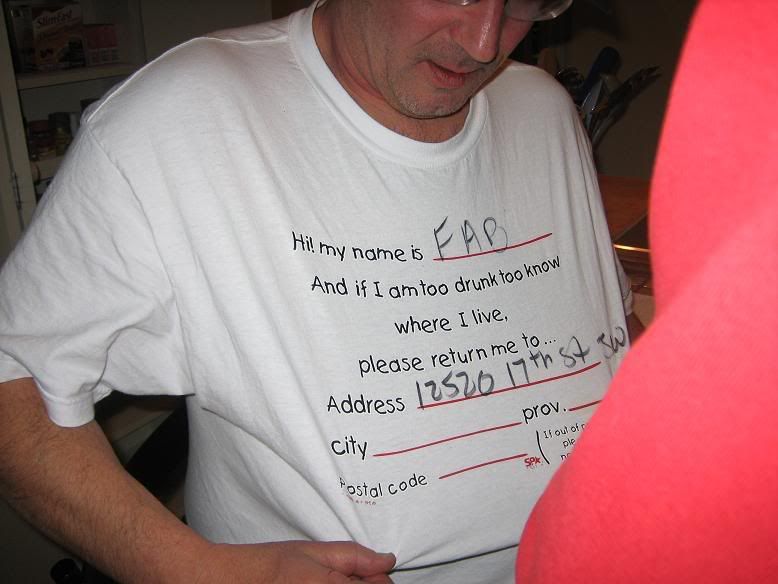 SlimFast
Hi! my name is FAB
And if I am too drunk too know
where I live,
please return me to...
Address 12520 17th St SW
city prov.
(If out of
ple
Postal code SPK